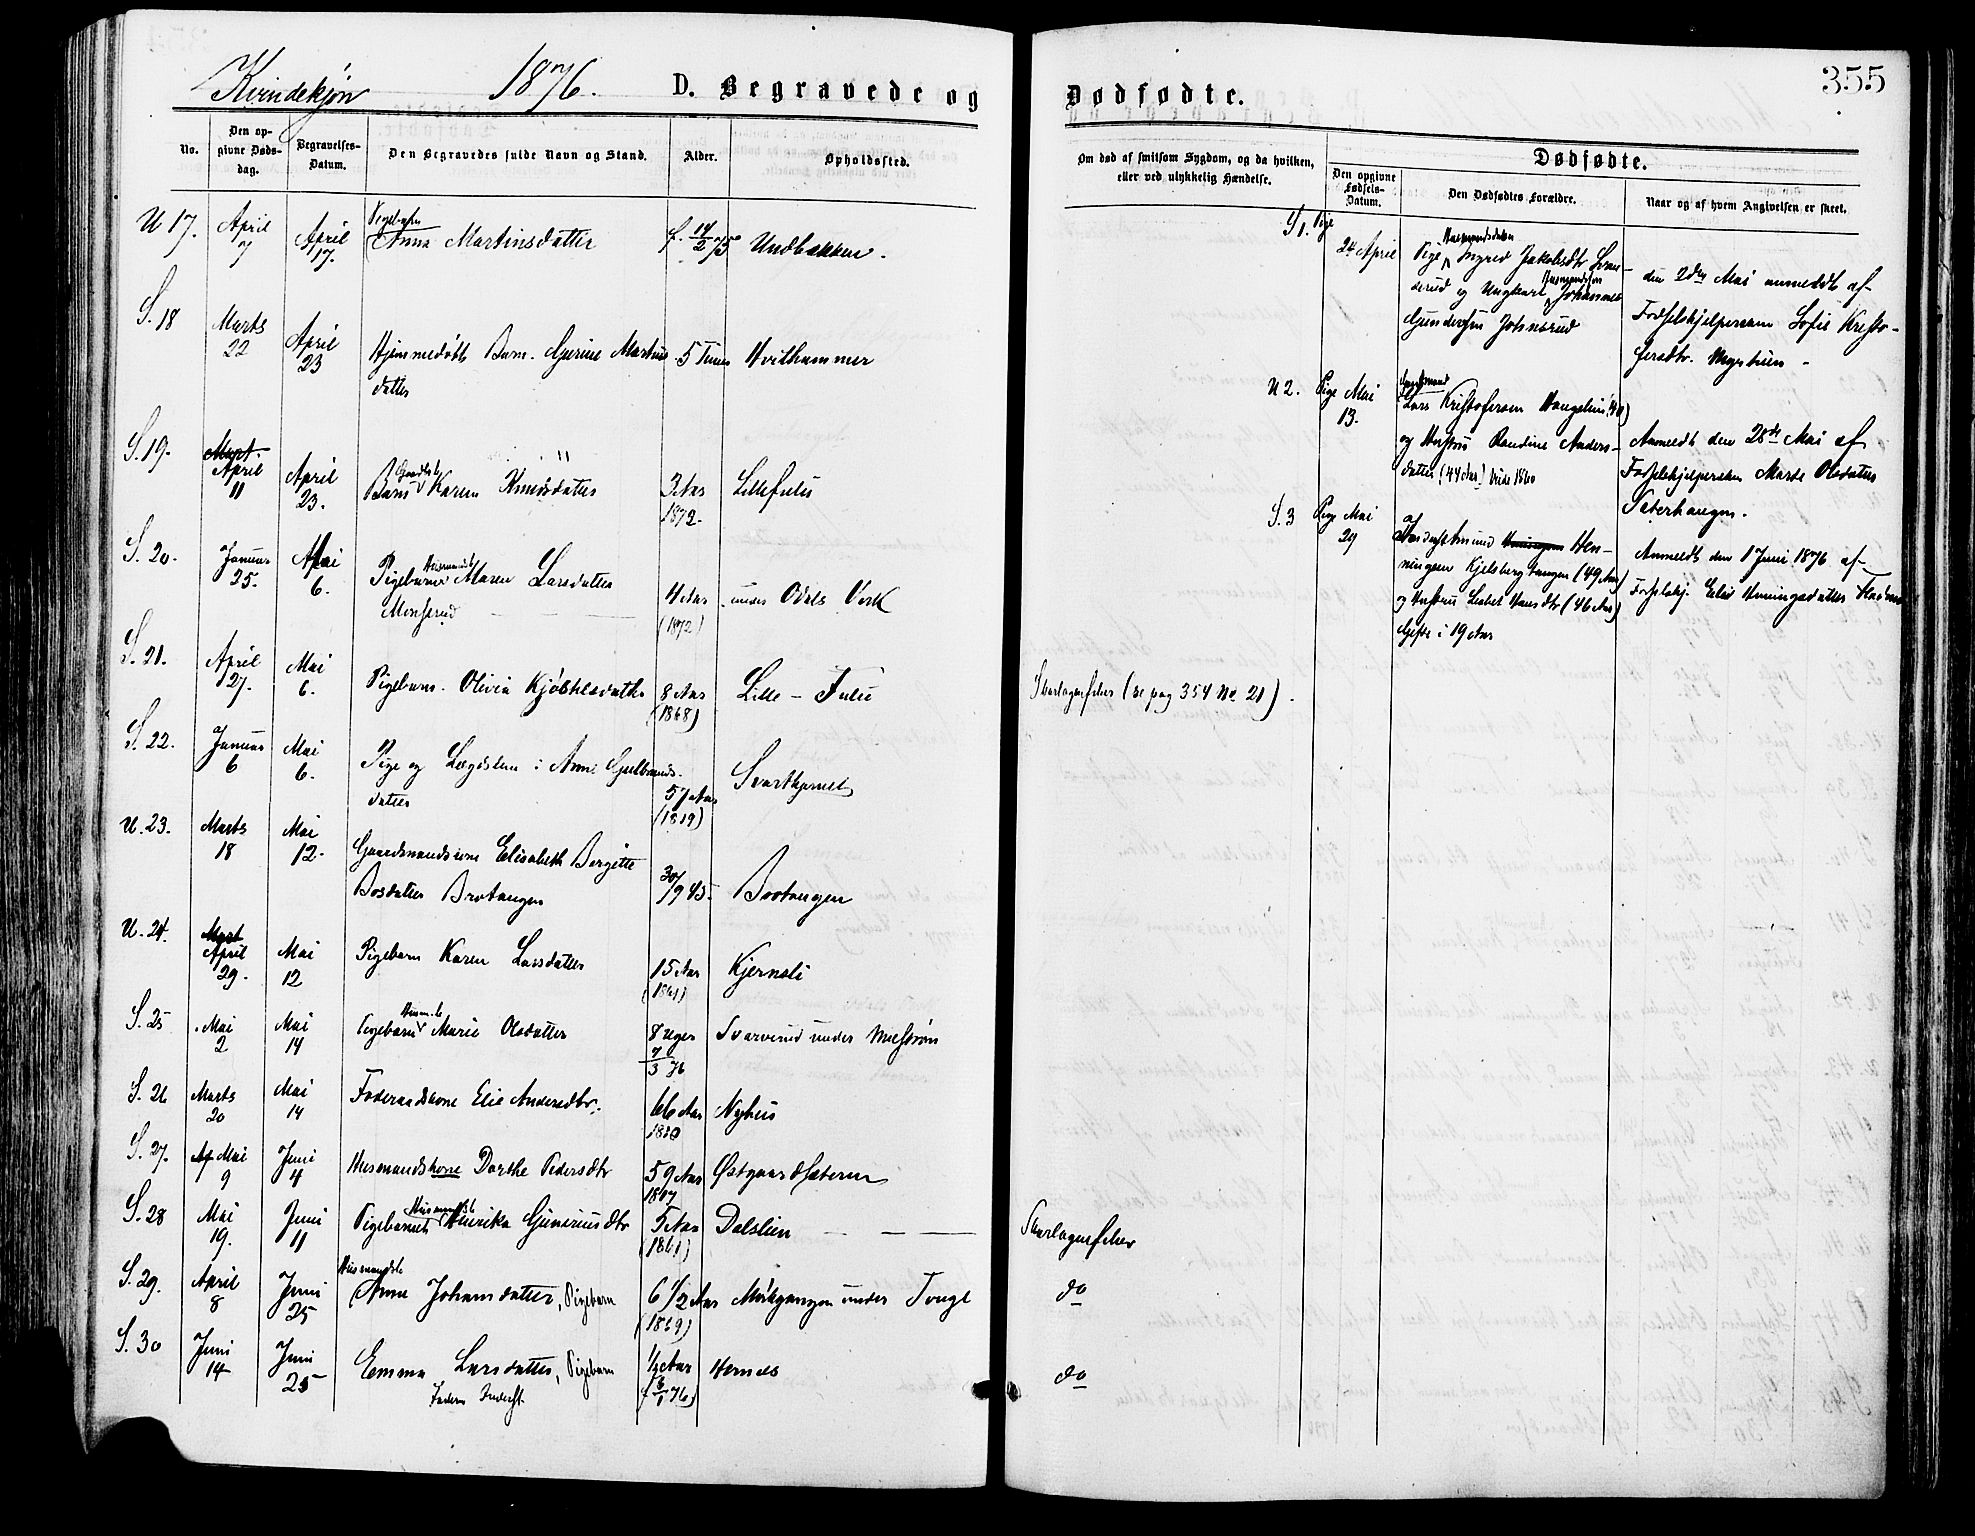 355
Kvindekjøn 1876. D. Begravede og Dødfødte.
No.
Den op-
givne Døds-
dag.
Begravelses-
Datum.
Den Begravedes fulde Navn og Stand.
Alder.
Opholdssted.
Om død af smitsom Sygdom, og da hvilken,
eller ved ulykkelig Hændelse.
Dødfødte.
Den opgivne
Fødsels-
Datum.
Den Dødfødtes Forældre.
Naar og af hvem Angivelsen er skeet.
Pigebarn
U 17. April 7 April 17. Anna Martinsdatter f. 14/2 75 Undbakken.
S. 18 Marts 22 April 23 Hjemmedøbt Barn. Gjerine Martins- 5 Timer Hvithammer
datter
S. 19. Mart. April 11 April 23. Barn Karen Knudsdatter 3 Aar Lillefulu
1872.
S. 20. Januar 25. Mai 6. Pigebarn Maren Larsdatter 4 Aar under Odals Verk
(1872)
S. 21. April 27. Mai 6. Pigebarn. Olivia Kjølstensdatter 8 Aar Lille - Fulu
(1868)
Skarlagensfeber (se pag 354 No 21).
S. 22. Januar 6 Mai 6. Pige og Lægdslem : Anne Gulbrands- 57 Aar Svartkjernet
datter (1819)
U. 23. Marts 18 Mai 12. Gaardmandskone Elisabeth Bergitte
Bosdatter Brotangen 30/9 45. Brotangen
U. 24. Mart April 29. Mai 12 Pigebarn Karen Larsdatter 15 Aar Kjernsli
(1861)
S. 25 Mai 2 Mai 14 Pigebarn Marie Olsdatter 8 Uger Svarverud under
7/3 76
S. 26 Marts 20 Mai 14 Føderaadskone Elie Andersdtr. 66 Aar Nyhus
1810
S. 27. Ap Mai 9 Juni 4 Husmandskone Dorthe Pedersdtr 59 Aar Østgaardsæteren
1817
S. 28 Mai 19. Juni 11 Pigebarnet Henrika Guneriusdtr 5 Aar Dalslien
Skarlagensfeber
S. 29. April 8 Juni 25 Anne Johansdatter, Pigebarn 6 1/2 Aar under
(1869)
do
S. 30 Juni 14 Juni 25 Emma Larsdatter, Pigebarn 1/2 Aar Hernes
(f 8/1 76)
do
S 1. Pige 24 April Pige Ingrid Jakobsdtr
og Ungkarl Johannes
Gundersen Johnsrud
den 2den Mai anmeldt af
Fødselshjelpersken Sofie Kristo-
fersdtr.
U 2. Pige Mai 13. Gaardmand
Lars Kristofersen
og Hustru Randine Anders-
datter (44 Aar) viede 1860
Anmeldt den 28de Mai af
Fødselshjelpersken Marte Olsdatter
Sæterhaugen.
S. 3 Pige Mai 29 Hen-
ningsen Kjelsbergtangen (49 Aar)
og Hustru Lisbet Hansdtr (46 Aar)
Gifte i 19 Aar
Anmeldt den 1 Juni 1876 af
Fødselshj. Elie Henningsdatter